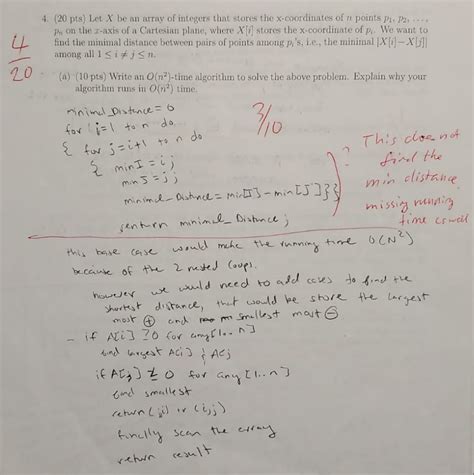 4. (20 pts) Let X be an array of integers that stores the x-coordinates of n points p₁, p₂, ...,
pₙ on the x-axis of a Cartesian plane, where X[i] stores the x-coordinate of pᵢ. We want to
find the minimal distance between pairs of points among pᵢ's, i.e., the minimal |X[i]−X[j]|
among all 1 ≤ i ≠ j ≤ n.
4
20
(a) (10 pts) Write an O(n²)-time algorithm to solve the above problem. Explain why your
algorithm runs in O(n²) time.
minimal_Distance = 0
3/10
for (i=1 to n do
{ for j=i+1 to n do
{ minI = i;
minJ = j;
minimal-Distance = min[I] - min[J]}}
return minimal_Distance;
?
This does not
find the
min distance
missing running
time as well
this base case would make the running time O(N²)
because of the 2 nested loops.
however we would need to add cases to find the
shortest distance, that would be store the largest
most ⊕ and smallest most ⊖
- if A[i] ≥ 0 for any [1..n]
find largest A[i] & A[j
if A[j] ≤ 0 for any [1..n]
find smallest
return (j,i) or (i,j)
finally scan the array
return result